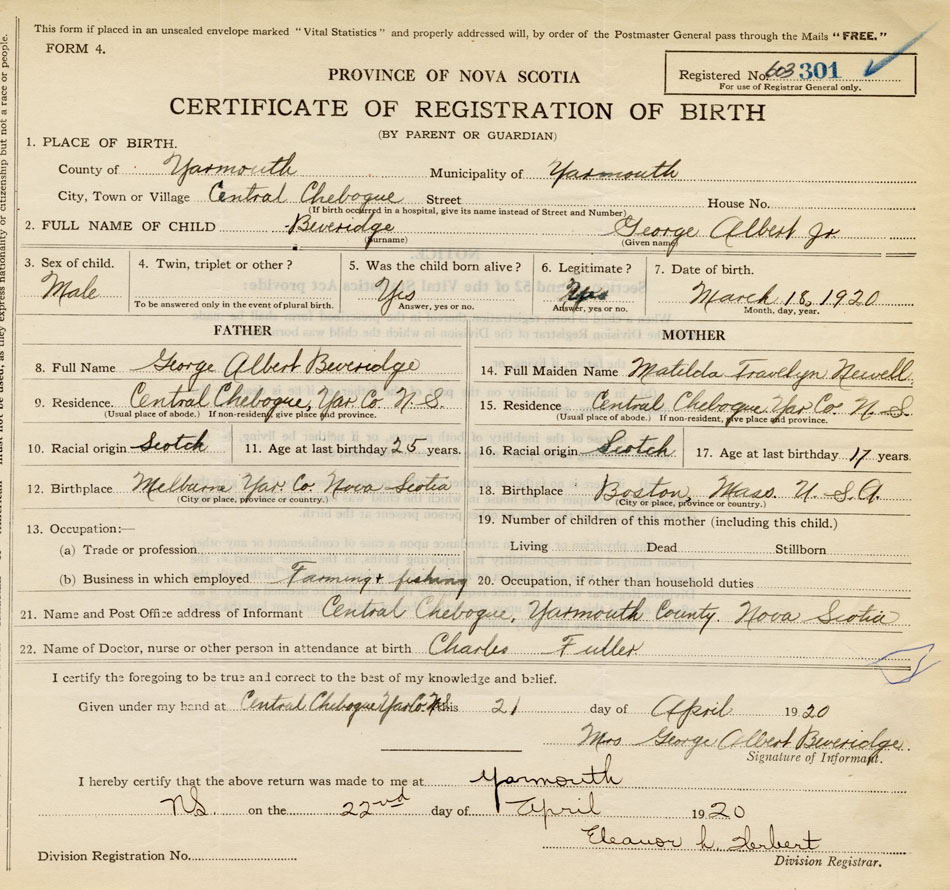 This form if placed in an unsealed envelope marked "Vital Statistics" and properly addressed will, by order of the Postmaster General pass through the Mails "FREE."
FORM 4.
Registered No. 603 301
For use of Registrar General only.
PROVINCE OF NOVA SCOTIA
CERTIFICATE OF REGISTRATION OF BIRTH
(BY PARENT OR GUARDIAN)
1. PLACE OF BIRTH.
County of Yarmouth Municipality of Yarmouth
City, Town or Village Central Chebogue Street House No.
(If birth occurred in a hospital, give its name instead of Street and Number)
2. FULL NAME OF CHILD Beveridge George Albert Jr
(Surname) (Given name)
3. Sex of child. 4. Twin, triplet or other? 5. Was the child born alive? 6. Legitimate? 7. Date of birth.
Male Yes Yes March 18, 1920
To be answered only in the event of plural birth. Answer, yes or no. Answer, yes or no. Month, day, year.
FATHER MOTHER
8. Full Name George Albert Beveridge 14. Full Maiden Name Matilda Newell
9. Residence. Central Chebogue, Yar. Co. N. S. 15. Residence Central Chebogue Yar Co. N. S.
(Usual place of abode.) If non-resident, give place and province. (Usual place of abode.) If non-resident, give place and province.
10. Racial origin Scotch 11. Age at last birthday 25 years. 16. Racial origin Scotch 17. Age at last birthday 17 years.
12. Birthplace Melburne Yar. Co. Nova Scotia 18. Birthplace Boston, Mass. U. S. A.
(City or place, province or country.) (City or place, province or country.)
13. Occupation:— 19. Number of children of this mother (including this child.)
(a) Trade or profession Living Dead Stillborn
(b) Business in which employed Farming + fishing 20. Occupation, if other than household duties
21. Name and Post Office address of Informant Central Chebogue, Yarmouth County. Nova Scotia
22. Name of Doctor, nurse or other person in attendance at birth Charles Fuller
I certify the foregoing to be true and correct to the best of my knowledge and belief.
Given under my hand at Central Chebogue Yar Co. N.S. this 21 day of April 1920
Mrs George Albert Beveridge
Signature of Informant.
I hereby certify that the above return was made to me at Yarmouth
N.S. on the 22nd day of April 1920
Eleanor h. Herbert
Division Registration No. Division Registrar.
must not be used, as they express nationality or citizenship but not a race or people.